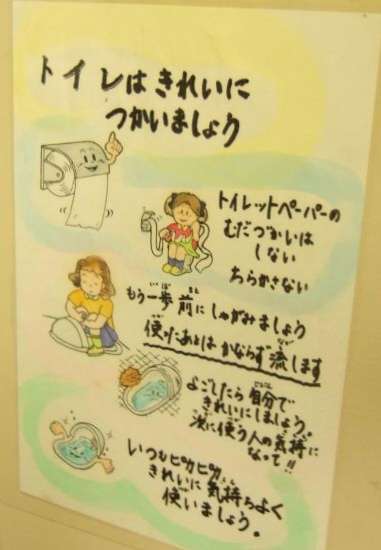 トイレはきれいに
つかいましょう
トイレットペーパーの
むだづかいは
しない
ちらかさない
もう一歩前にしゃがみましょう
使ったあとはかならず流します
よごしたら自分で
きれいにしましょう。
次に使う人の気持に
なって!!
いつもピカピカ
きれいに気持ちよく
使いましょう。